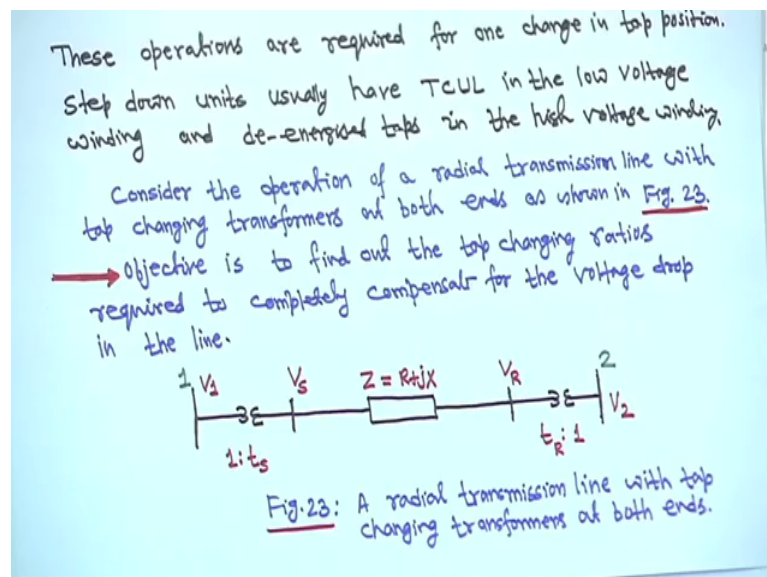 These operations are required for one change in tap position.
Step down units usually have TCUL in the low voltage
winding and de-energised taps in the high voltage winding.
Consider the operation of a radial transmission line with
tap changing transformers at both ends as shown in Fig. 23.
Objective is to find out the tap changing ratios
required to completely compensate for the voltage drop
in the line.
1 V1 VS Z = R+jX VR 2
V2
1:tS tR:1
Fig.23: A radial transmission line with tap
changing transformers at both ends.